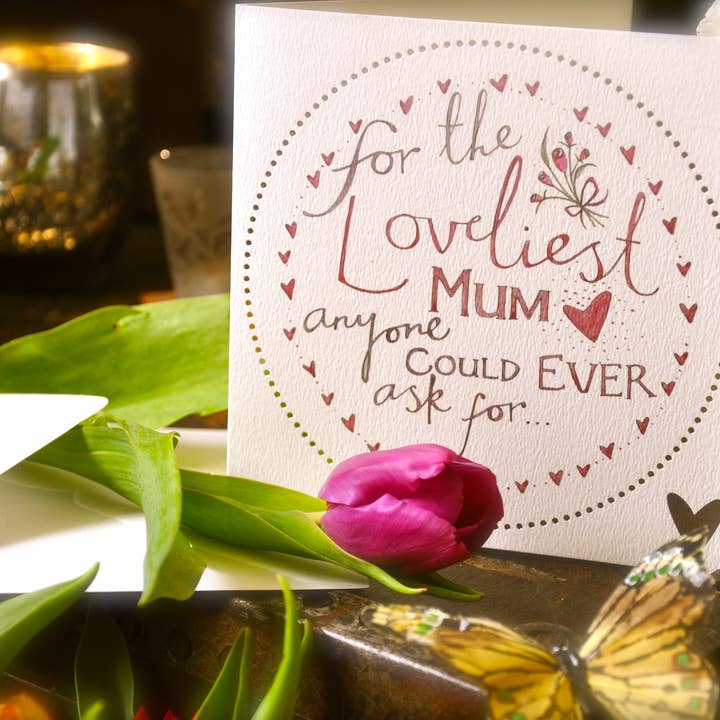 for the
Loveliest
MUM
anyone
COULD EVER
ask for...